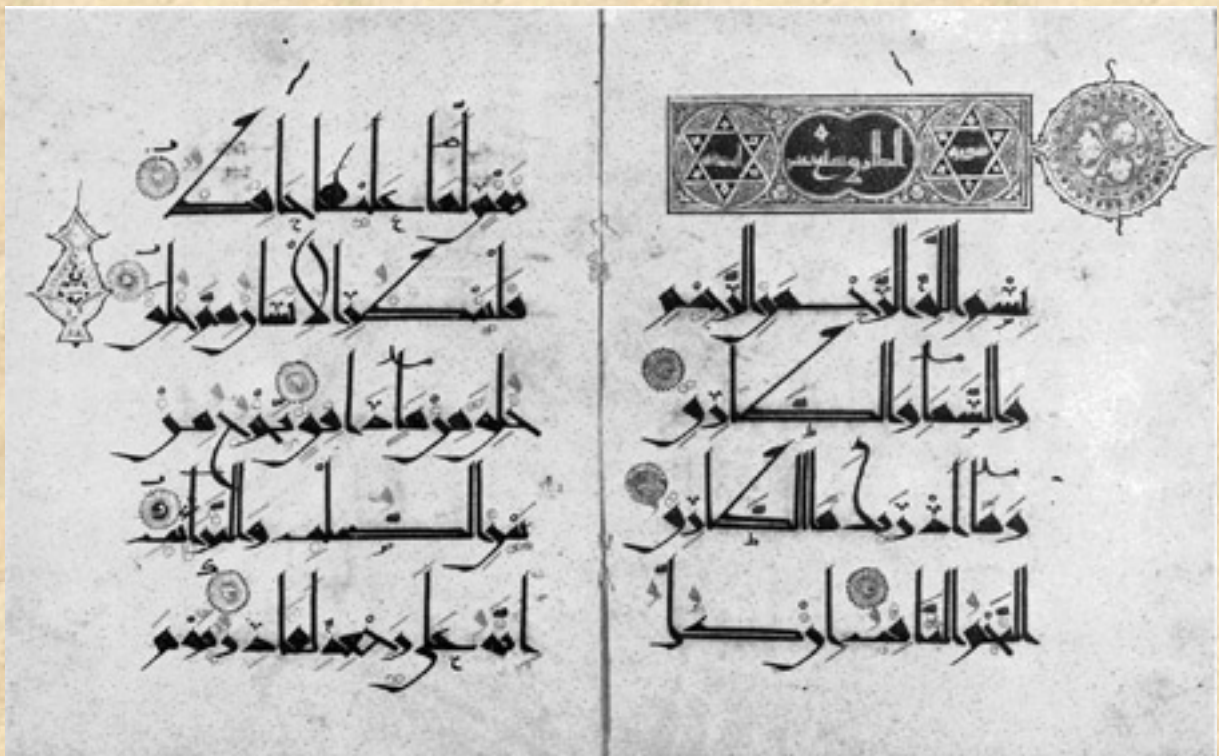 سورة الطارق
بسم الله الرحمن الرحيم
والسماء والطارق
وما ادريك ما الطارق
النجم الثاقب ان كل
نفس لما عليها حافظ
فلينظر الانسان مم خلق
خلق من ماء دافق يخرج من
بين الصلب والترائب
انه على رجعه لقادر يوم